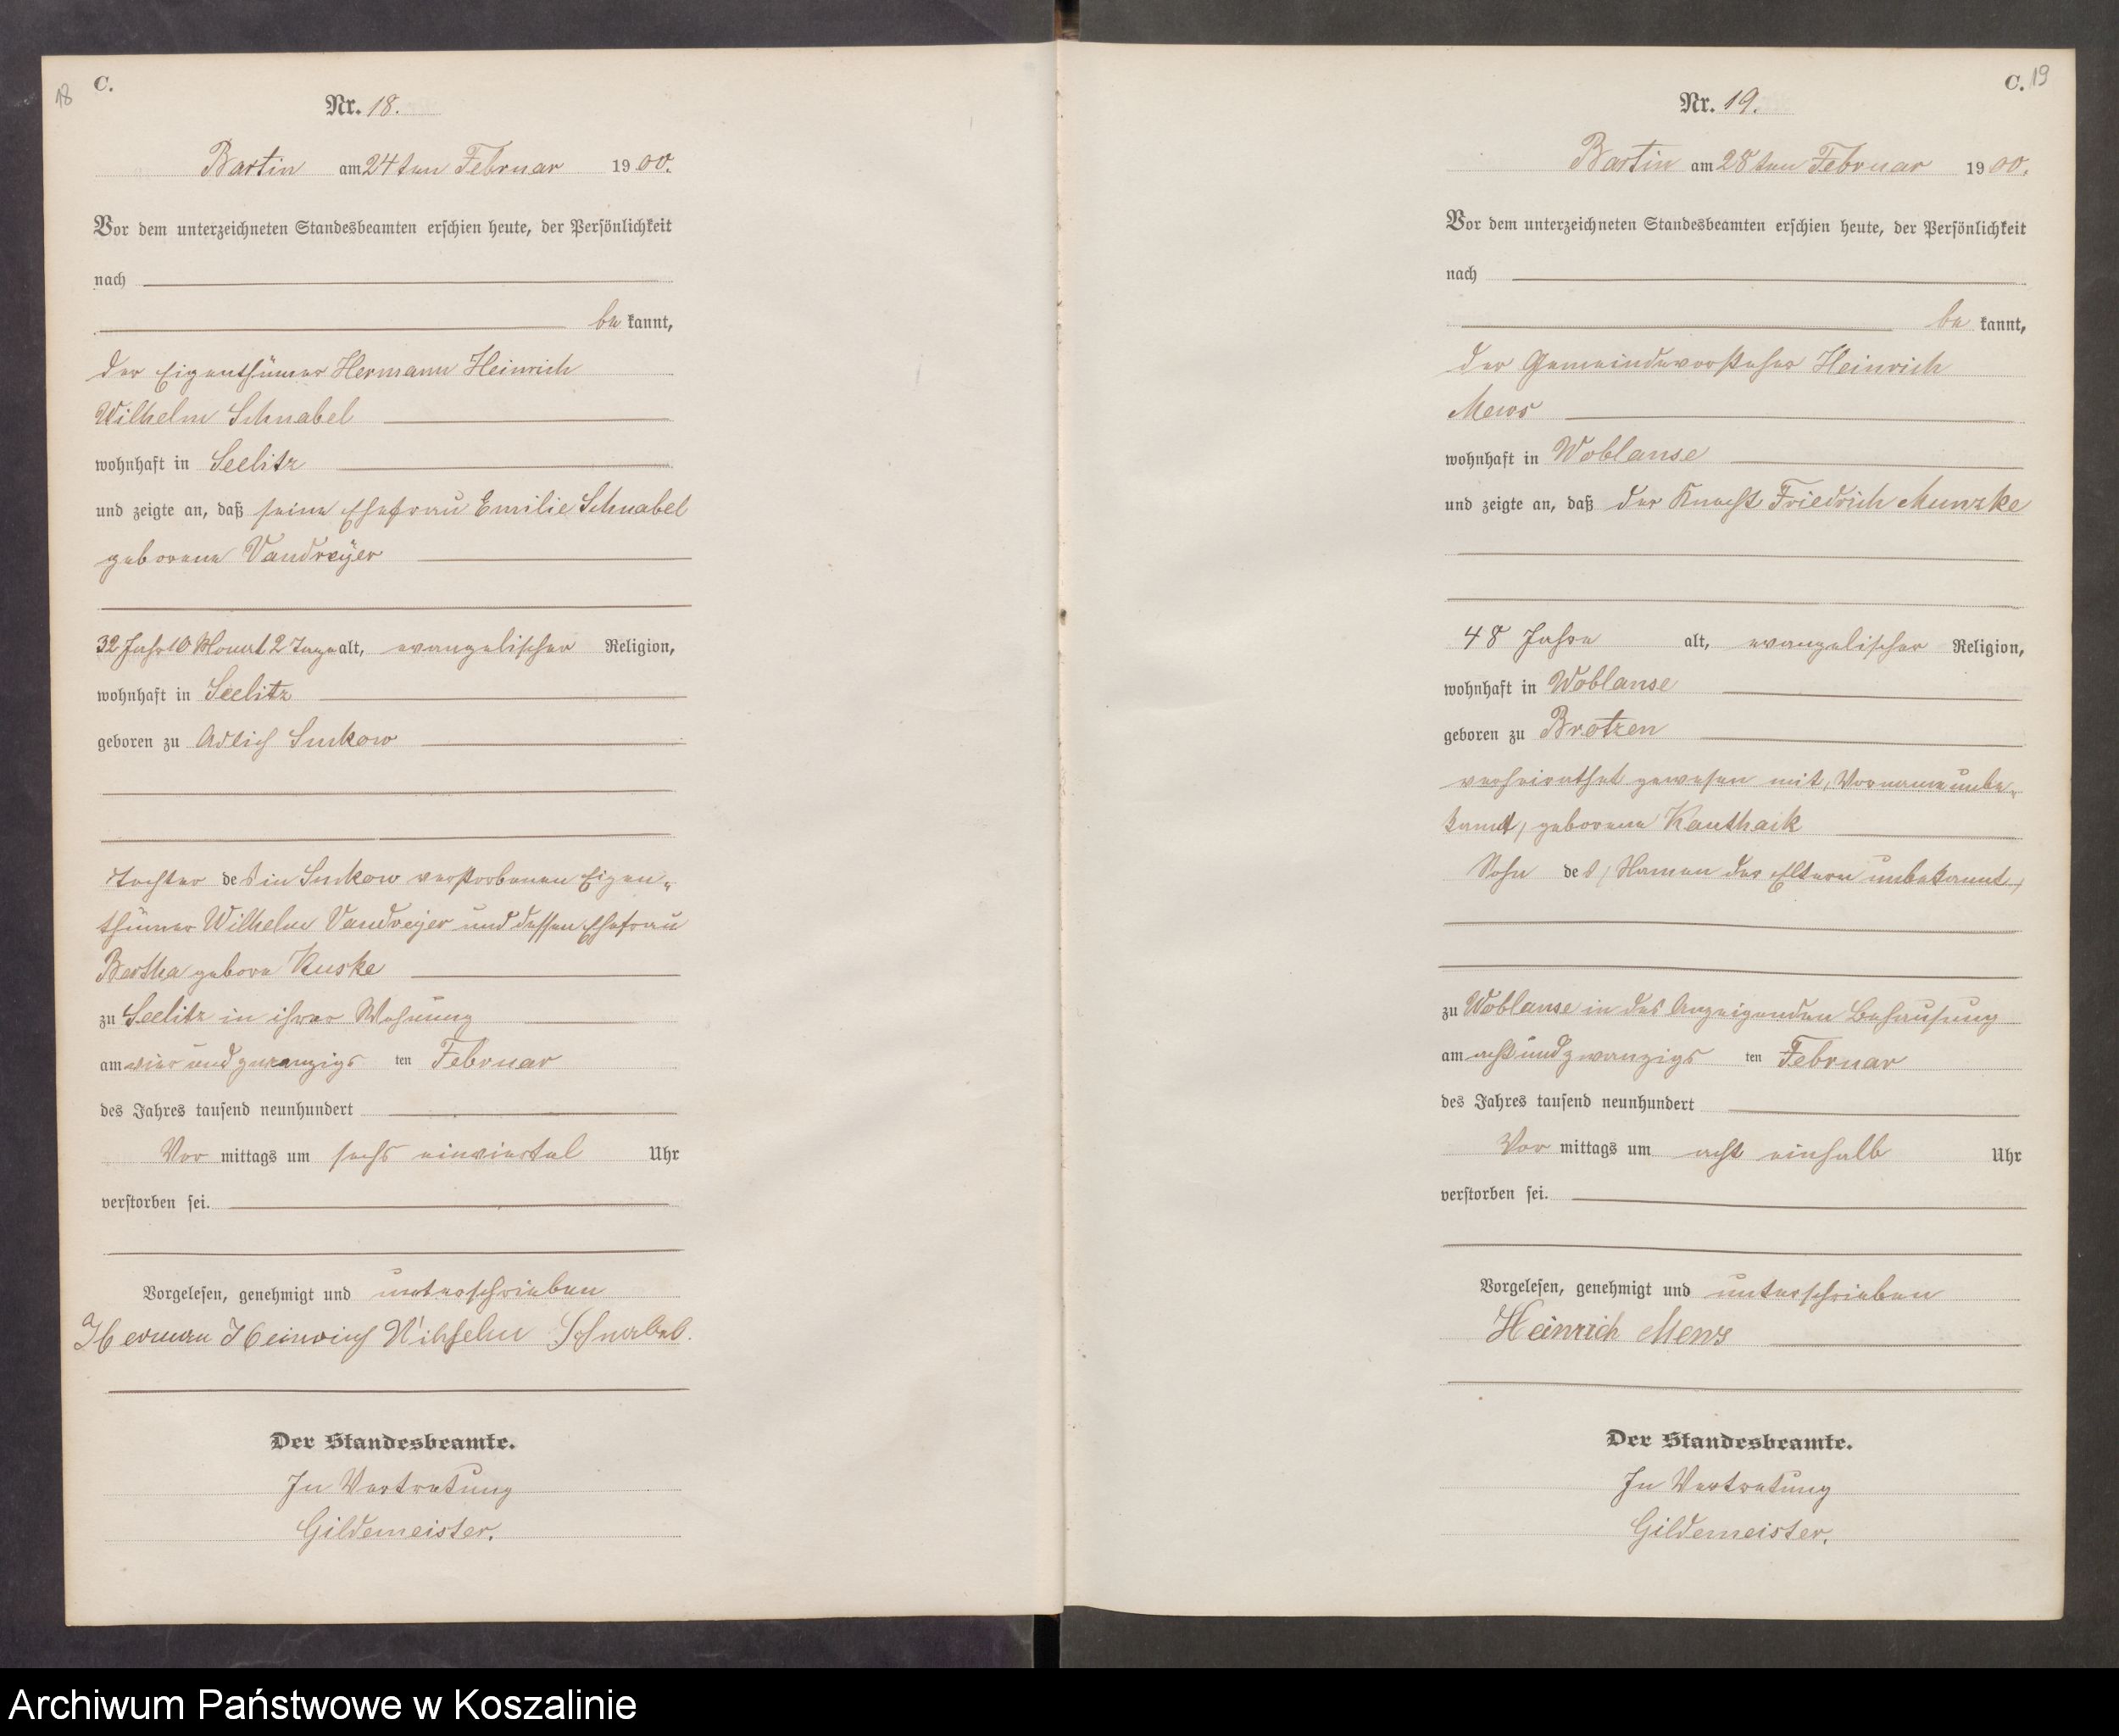 18
C.
Nr. 18.
Bartin am 24ten Februar 1900.
Vor dem unterzeichneten Standesbeamten erschien heute, der Persönlichkeit
nach
be kannt,
der Eigenthümer Hermann Heinrich
Wilhelm Schnabel
wohnhaft in Seelitz
und zeigte an, daß seine Ehefrau Emilie Schnabel
geborene Vandreÿer
32 Jahr 10 Monat 2 Tage alt, evangelischer Religion,
wohnhaft in Seelitz
geboren zu Adlich Suckow
Tochter des in Suckow verstorbenen Eigen„
thümer Wilhelm Vandreÿer und dessen Ehefrau
Bertha gebore Kuske
zu Seelitz in ihrer Wohnung
am vier und zwanzigs ten Februar
des Jahres tausend neunhundert
Vor mittags um sechs einviertel Uhr
verstorben sei.
Vorgelesen, genehmigt und unterschrieben
Herman Heinrich Wilhelm Schnabel.
Der Standesbeamte.
In Vertretung
Gildemeister.
C. 19
Nr. 19.
Bartin am 28ten Februar 1900.
Vor dem unterzeichneten Standesbeamten erschien heute, der Persönlichkeit
nach
be kannt,
der Gemeindevorsteher Heinrich
Mews
wohnhaft in Woblanse
und zeigte an, daß der Knecht Friedrich Munzke
48 Jahre alt, evangelischer Religion,
wohnhaft in Woblanse
geboren zu Brotzen
verheirathet gewesen mit, Vorname unbe„
kannt, geborene Kanthaik
Sohn des, Namen der Eltern unbekannt,
zu Woblanse in des Anzeigenden Behausung
am acht und zwanzigs ten Februar
des Jahres tausend neunhundert
Vor mittags um acht einhalb Uhr
verstorben sei.
Vorgelesen, genehmigt und unterschrieben
Heinrich Mews
Der Standesbeamte.
In Vertretung
Gildemeister.
Archiwum Państwowe w Koszalinie